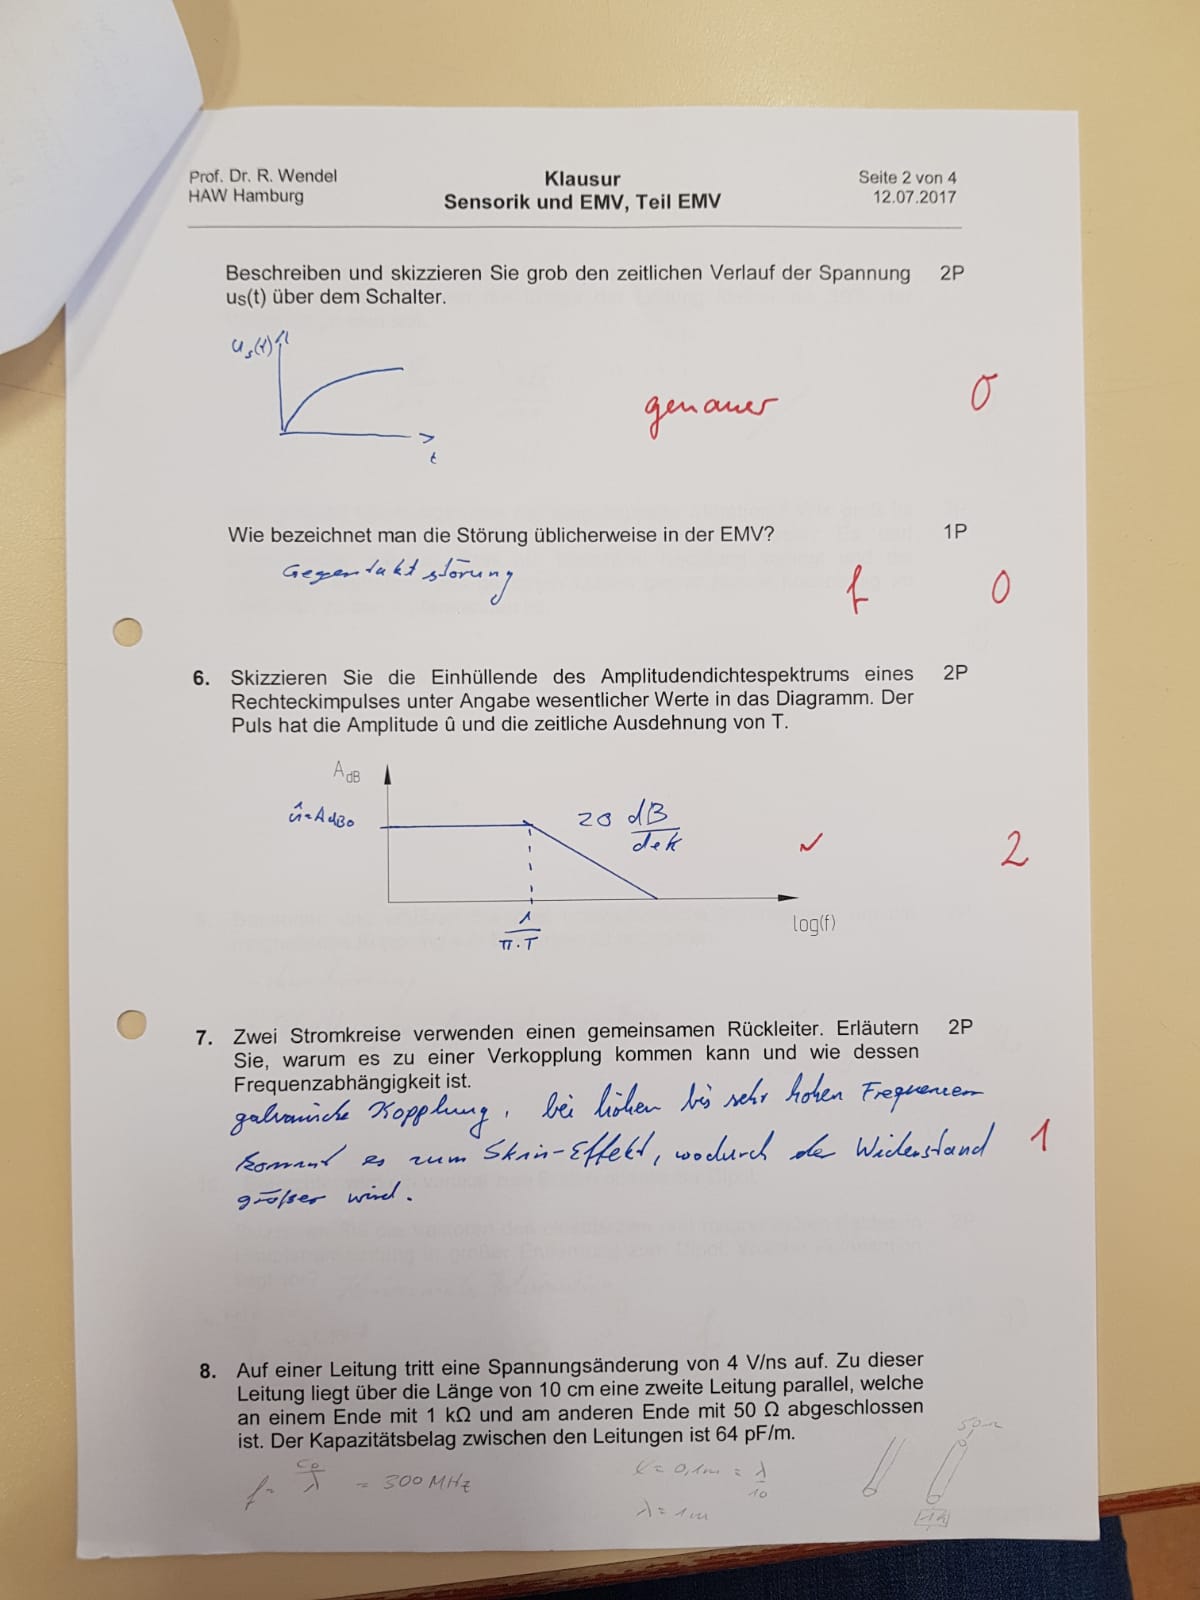 Prof. Dr. R. Wendel
HAW Hamburg
Klausur
Sensorik und EMV, Teil EMV
Seite 2 von 4
12.07.2017
Beschreiben und skizzieren Sie grob den zeitlichen Verlauf der Spannung 2P
us(t) über dem Schalter.
us(t)
t
genauer
0
Wie bezeichnet man die Störung üblicherweise in der EMV? 1P
Gegentaktstörung
f 0
6. Skizzieren Sie die Einhüllende des Amplitudendichtespektrums eines 2P
Rechteckimpulses unter Angabe wesentlicher Werte in das Diagramm. Der
Puls hat die Amplitude û und die zeitliche Ausdehnung von T.
AdB
û=AdB0
20 dB/dek
✓ 2
1/π·T
log(f)
7. Zwei Stromkreise verwenden einen gemeinsamen Rückleiter. Erläutern 2P
Sie, warum es zu einer Verkopplung kommen kann und wie dessen
Frequenzabhängigkeit ist.
galvanische Kopplung, bei hohen bis sehr hohen Frequenzen
kommt es zum Skin-Effekt, wodurch der Widerstand 1
größer wird.
8. Auf einer Leitung tritt eine Spannungsänderung von 4 V/ns auf. Zu dieser
Leitung liegt über die Länge von 10 cm eine zweite Leitung parallel, welche
an einem Ende mit 1 kΩ und am anderen Ende mit 50 Ω abgeschlossen
ist. Der Kapazitätsbelag zwischen den Leitungen ist 64 pF/m.
f= c0/λ = 300 MHz
l= 0,1m = λ/10
λ= 1m
50Ω
1k